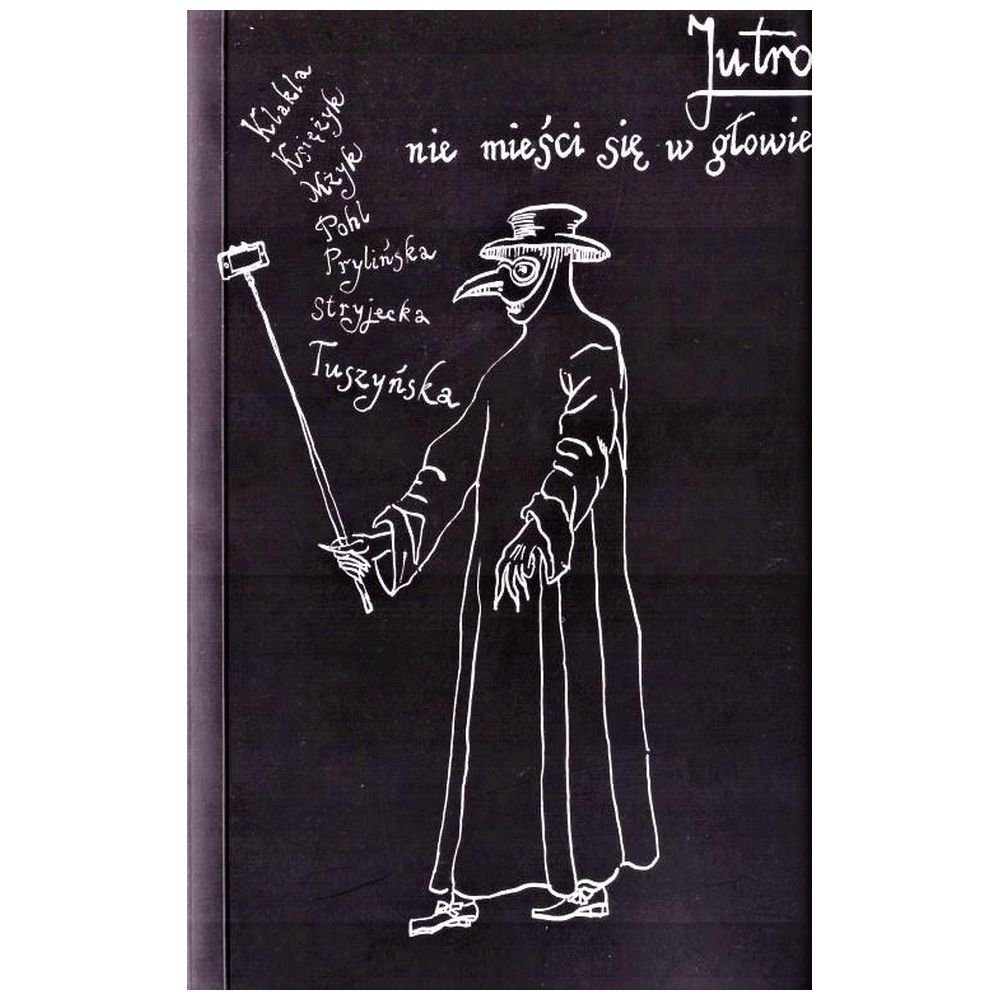 Jutro
nie mieści się w głowie
Klakla
Księżyk
Mżyk
Pohl
Prylińska
Stryjecka
Tuszyńska